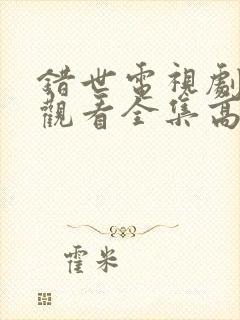 錯世電視劇
觀看全集高
霍米